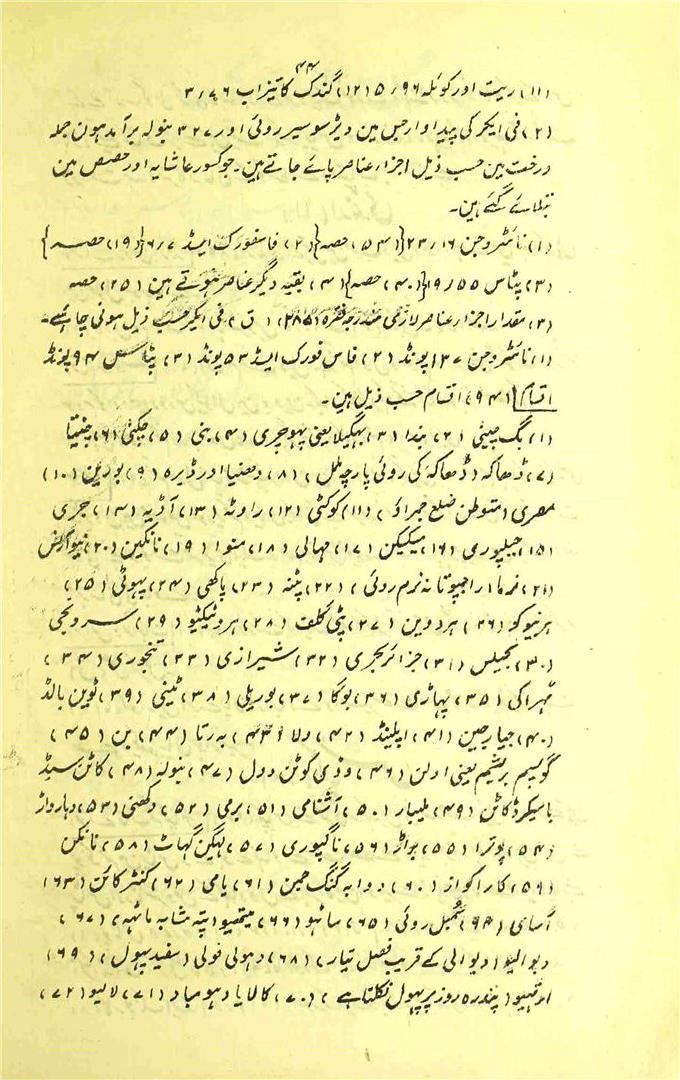 ۴۴
(۱۱) ریت اور کوئلہ ۵٫۹۶ (۱۲) گندک کا تیزاب ۳٫۷۶
(۲) فی ایکر کی پیداوار جس مین ڈیڑسو سیر روئی اور ۳۲۷ بنولہ برآمد ہون جملہ
درخت مین حسب ذیل اجزاء عناصر پائے جاتے ہین۔ جو کسور عاشایہ اور حصص مین
بتلائے گئے ہین۔
(۱) نائٹروجن ۲۳٫۱۶ {(۵۳) حصہ} (۲) فاسفورک ایسڈ ۶٫۷ {(۱۹) حصہ}
(۳) پٹاس ۱۹٫۵۵ {(۴۰) حصہ} (۴) بقیہ دیگر عناصر ہوتے ہین (۲۵) حصہ
(۳) مقدار اجزار عناصر لازمی مندرجہ فقرہ (۲۸۵) (ق) فی ایکر حسب ذیل ہونی چاہئے۔
(۱) نائٹروجن ۱۳۷ پونڈ (۲) فاس فورک ایسڈ ۵۳ پونڈ (۳) پٹاسس ۹۴ پونڈ
اقسام (۹۴) اقسام حسب ذیل ہین۔
(۱) بگ چینی (۲) بندا (۳) بہگیلا یعنی پہوچری (۴) بنی (۵) چکنی (۶) چنیتا
(۷) ڈھاکہ (ڈھاکہ کی روئی پارچہ ململ) (۸) دھنیا اور ڈیرہ (۹) بوربن (۱۰)
مصری (متوطن ضلع جہراؤ) (۱۱) کوکٹی (۱۲) راوٹہ (۱۳) آڈیہ (۱۴) جری
(۱۵) جیلپوری (۱۶) میکیکن (۱۷) مہالی (۱۸) منوا (۱۹) نانکین (۲۰) نیوآرلنس
(۲۱) نرما (راجپوتانہ نرم روئی) (۲۲) پٹنہ (۲۳) پاکھی (۲۴) پہوئی (۲۵)
ہرنیوکو (۲۶) ہردوین (۲۷) پٹی گلف (۲۸) ہروٹیکٹیو (۲۹) سرونجی
(۳۰) بجیلس (۳۱) جزائر بحری (۳۲) شیرازی (۳۳) تنجوری (۳۴)
مہراکی (۳۵) پہاڑی (۳۶) بوکا (۳۷) بوریلی (۳۸) ٹمینی (۳۹) ٹوبن بالڈ
(۴۰) جیارجین (۴۱) اپلینڈ (۴۲) ولا (۴۳) بہ رتا (۴۴) بن (۴۵)
گوسیم بریشیم یعنی اولن (۴۶) وڈی کوٹن وول (۴۷) بنولہ (۴۸) کاٹن سیڈ
باسیکرڈ کاٹن (۴۹) ملیبار (۵۰) آشتامی (۵۱) برمی (۵۲) دکھنی (۵۳) دہارواڑ
(۵۴) پوترا (۵۵) براڑ (۵۶) ناگپوری (۵۷) ہنگن گہاٹ (۵۸) نانکن
(۵۹) کاراکواز (۶۰) دوابہ گنگ جمن (۶۱) یامی (۶۲) کنٹر کاٹن (۶۳)
آسای (۶۴) سمبل روئی (۶۵) ساٹہو (۶۶) میتھیو (پتہ مشابہ ماٹہہ) (۶۷)
دیوالیو (دیوالی کے قریب فصل تیار) (۶۸) دہولی فولی (سفید پہول) (۶۹)
اوتہیو (پندرہ روز پر پہول نکلتا ہے) (۷۰) کالایا (دہومباد) (۷۱) لالیو (۷۲)